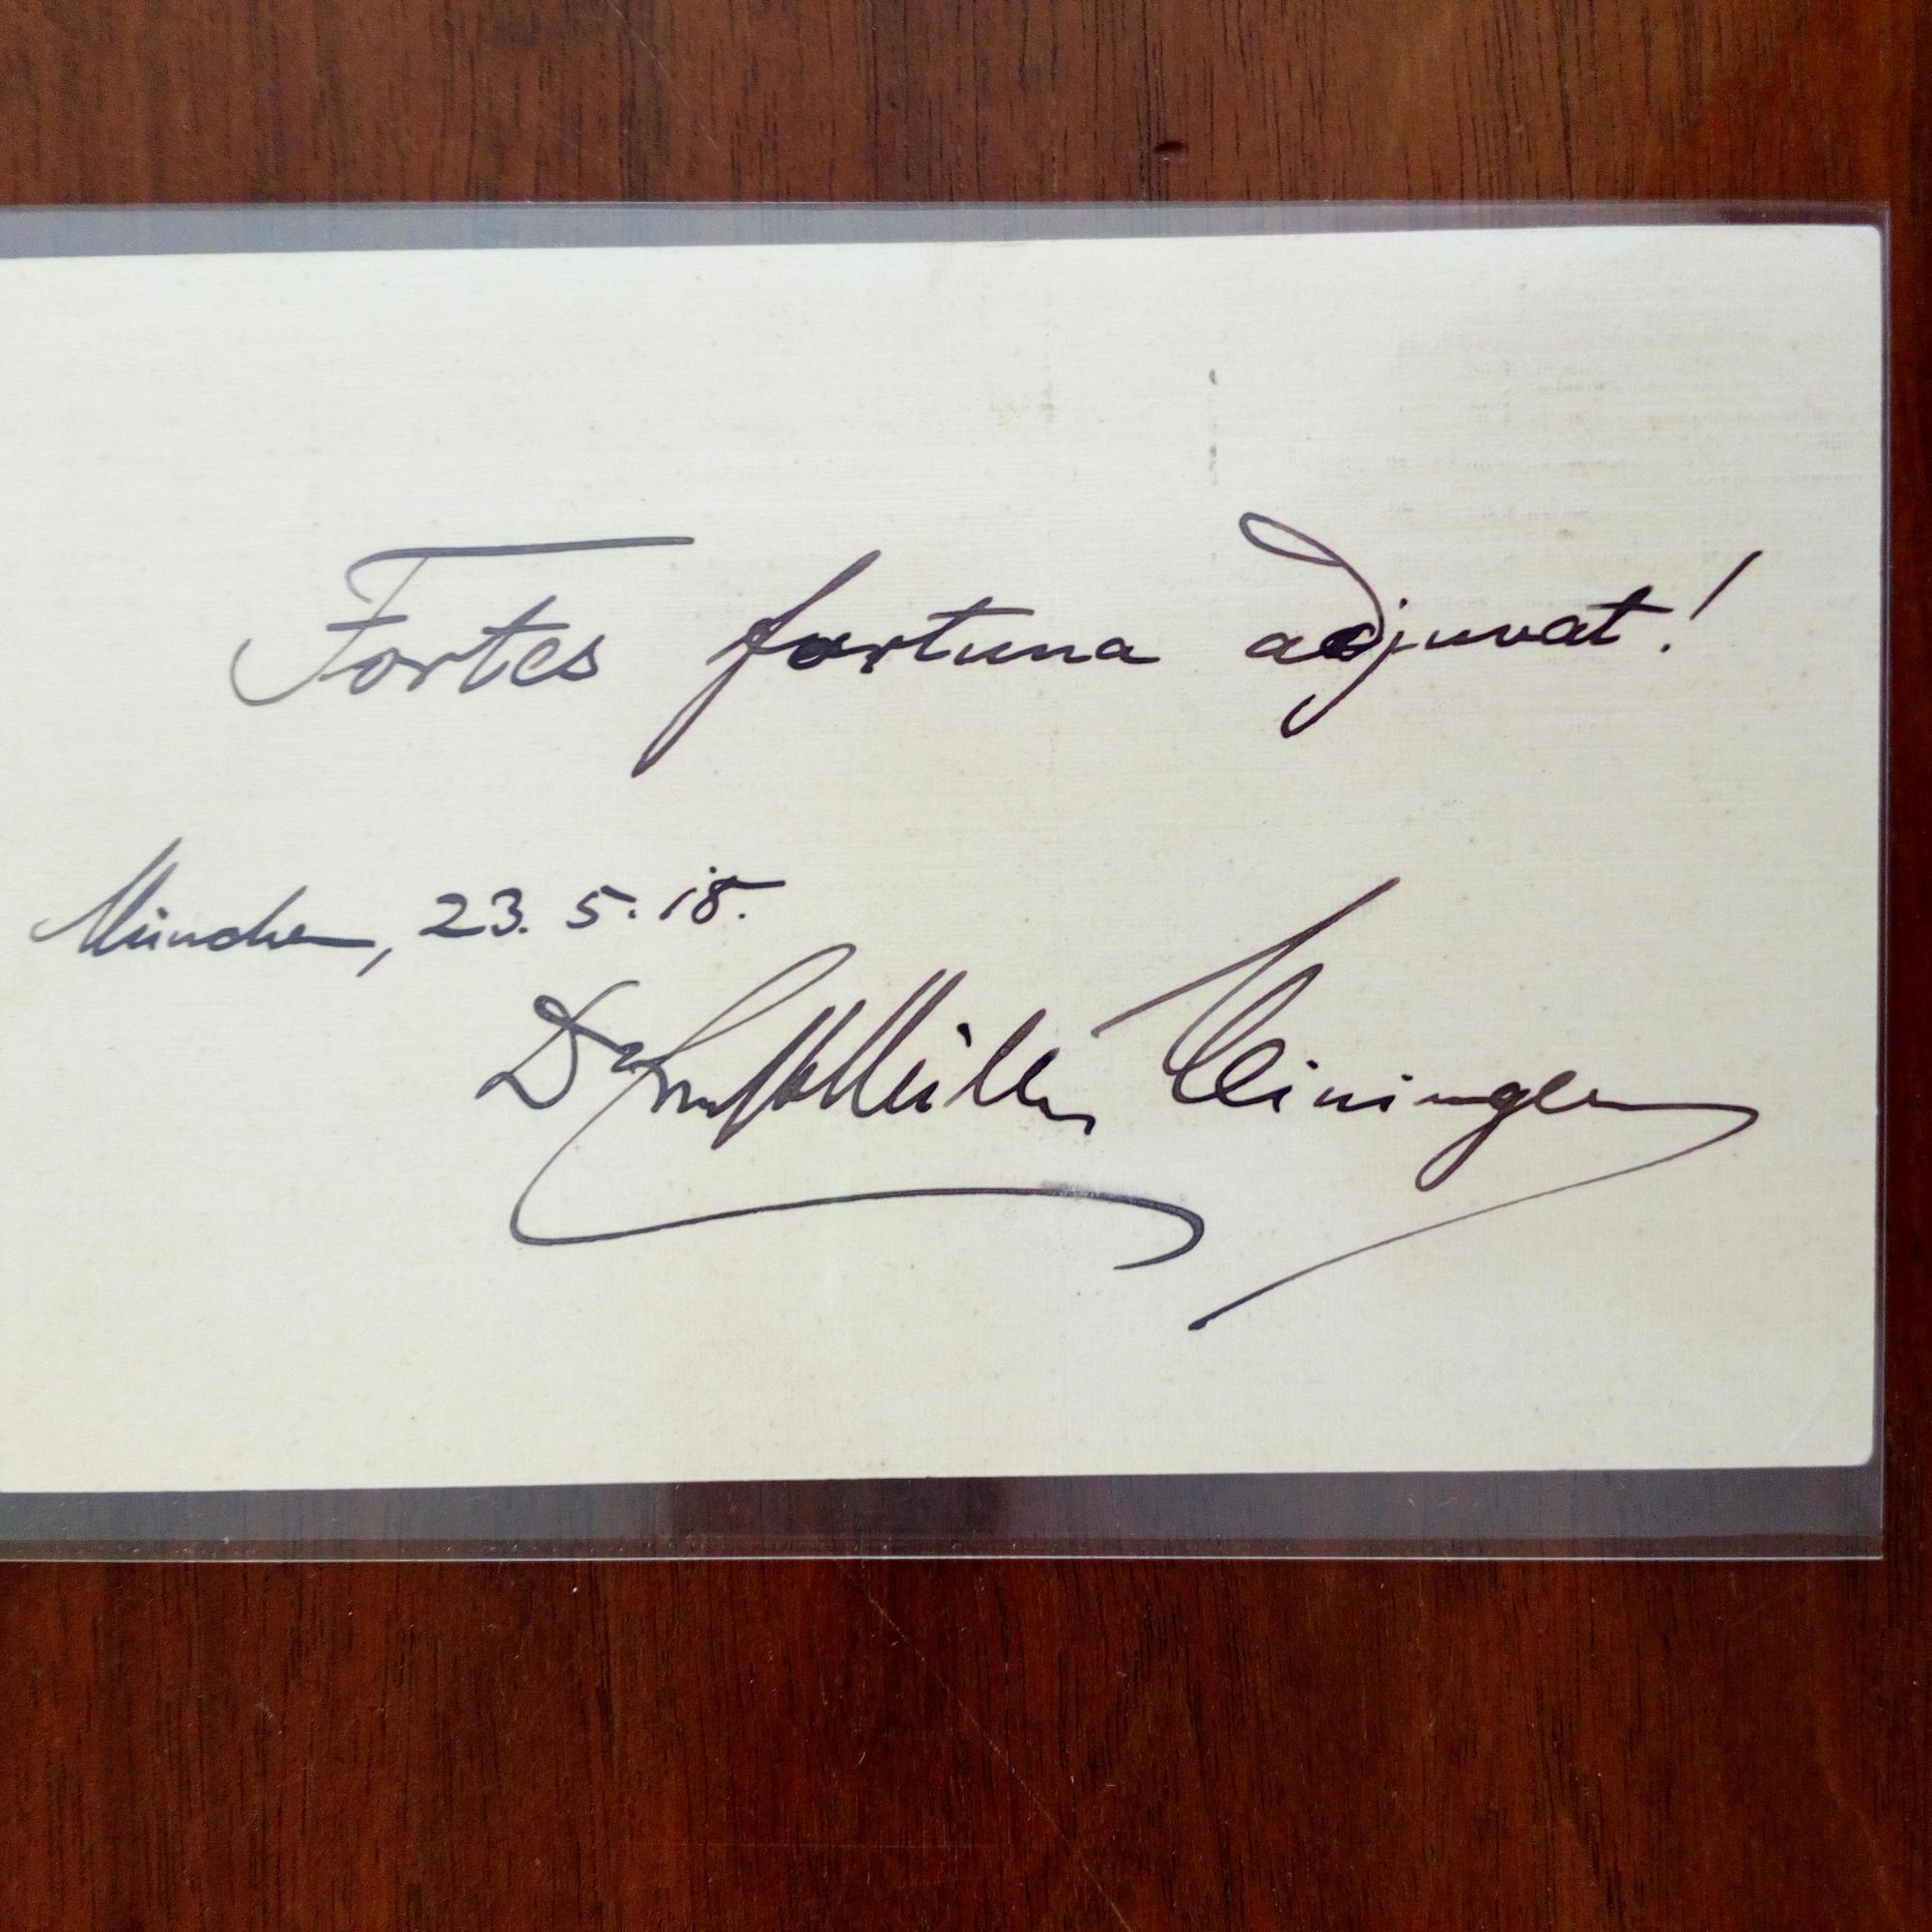 Fortes fortuna adjuvat!
München, 23. 5. 18.
Dr Müller Meiningen